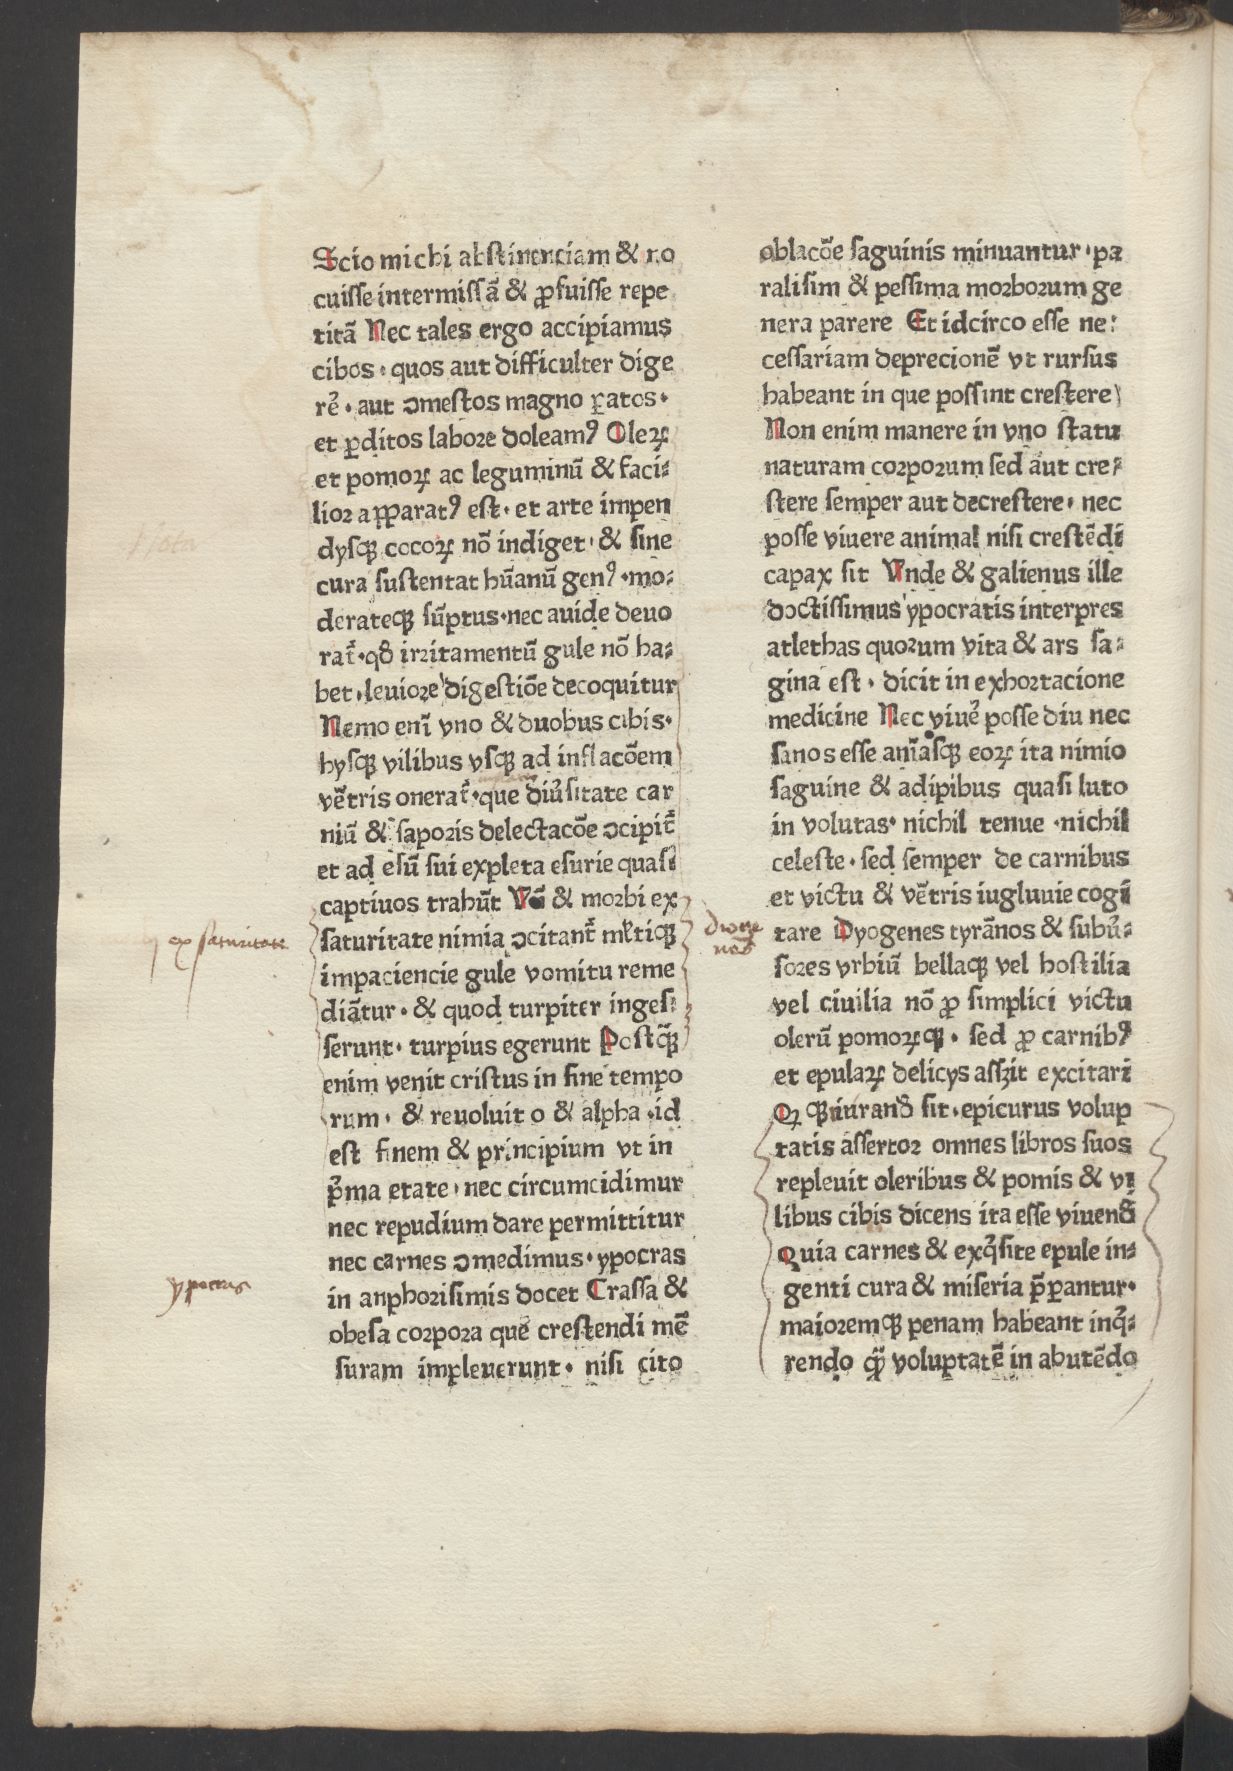 Scio michi abstinenciam & no
cuisse intermissā & ꝓfuisse repe
titā Nec tales ergo accipiamus
cibos · quos aut difficulter dige
rē · aut ↄmestos magno ꝑatos ·
et ꝑditos labore doleamꝰ Oleꝝ
et pomoꝝ ac leguminū & faci⸗
lior apꝑatꝰ est · et arte impen
dysqꝫ cocoꝝ nō indiget · & sine
cura sustentat hūanū genꝰ · mo⸗
derateqꝫ sūptus · nec auide deuo
rat̄ · qđ irritamentū gule nō ha⸗
bet · leuiore digestiōe decoquitur
Nemo enī vno & duobus cibis ·
hysqꝫ vilibus vsqꝫ ad inflacōem
vētris onerat̄ · que diūsitate car
niū & saporis delectacōe ↄcipit̄
et ad esū sui expleta esurie quasi
captiuos trahūt Vñ & morbi ex
saturitate nimia ↄcitant̄ ml̄tiqꝫ
impaciencie gule vomitu reme
diātur · & quod turpiter inges⸗
serunt · turpius egerunt Postqꝫ̄
enim venit cristus in fine tempo
rum · & reuoluit o & alpha · id
est finem & principium vt in
p̄ma etate · nec circumcidimur
nec repudium dare permittitur
nec carnes ↄmedimus · ypocras
in anphorisimis docet Crassa &
obesa corpora que crestendi mē
suram impleuerunt · nisi cito
ex saturitate
ypocras
oblacōe saguinis minuantur · pa
ralisim & pessima morborum ge
nera parere Et idcirco esse ne⸗
cessariam deprecionē vt rursus
habeant in que possint crestere
Non enim manere in vno statu
naturam corporum sed aut cre⸗
stere semper aut decrestere · nec
posse viuere animal nisi crestēdi
capax sit Vnde & galienus ille
doctissimus ypocratis interpres
atlethas quorum vita & ars sa⸗
gina est · dicit in exhortacione
medicine Nec viuē posse diu nec
sanos esse aniāsqꝫ eoꝝ ita nimio
saguine & adipibus quasi luto
in volutas · nichil tenue · nichil
celeste · sed semper de carnibus
et victu & vētris iugluuie cogi
tare Dyogenes tyrānos & subū⸗
sores vrbiū bellaqꝫ vel hostilia
vel ciuilia nō ꝓ simplici victu
olerū pomoꝝqꝫ · sed ꝓ carnibꝰ
et epulaꝝ delicys assʒit excitari
Qꝫ qꝫ iurand̄ sit · epicurus volup
tatis assertor omnes libros suos
repleuit oleribus & pomis & vi
libus cibis dicens ita esse viuend̄
Quia carnes & exq̄site epule in⸗
genti cura & miseria p̄ꝑantur ·
maioremqꝫ penam habeant inq̄⸗
rendo qꝫ̄ voluptatē in abutēdo